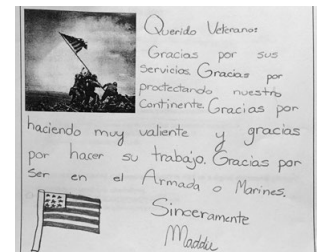 Querido Veterano:
Gracias por sus
servicios. Gracias por
proctectando nuestro
Continente. Gracias por
haciendo muy valiente y gracias
por hacer su trabajo. Gracias por
ser en el Armada o Marines.
Sinceramente
Maddu